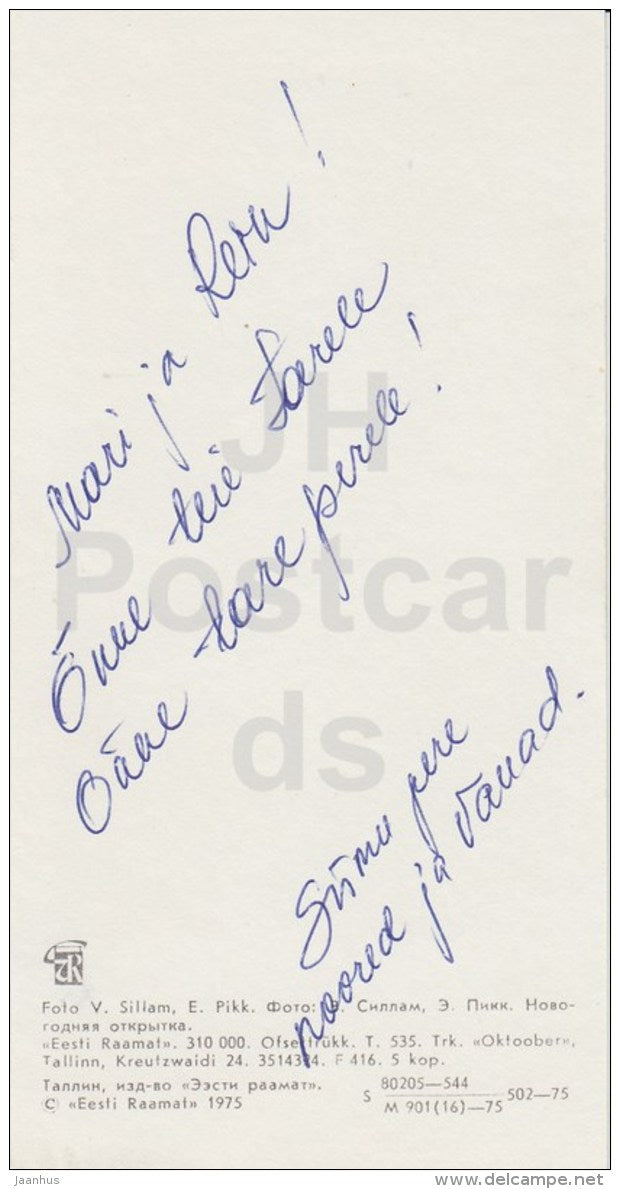 Mari ja Rein!
Õnne teie tarele
Õnne tare perele!
Siimu pere
noored ja vanad.
JH
Postcar
ds
Foto V. Sillam, E. Pikk. Фото: В. Силлам, Э. Пикк. Ново-
годняя открытка.
«Eesti Raamat». 310 000. Ofsettrükk. T. 535. Trk. «Oktoober»,
Tallinn, Kreutzwaldi 24. F 416. 5 kop.
Таллин, изд-во «Ээсти раамат».
© «Eesti Raamat» 1975
S 80205—544
M 901(16)—75 502—75
Jaanhus
www.delcampe.net